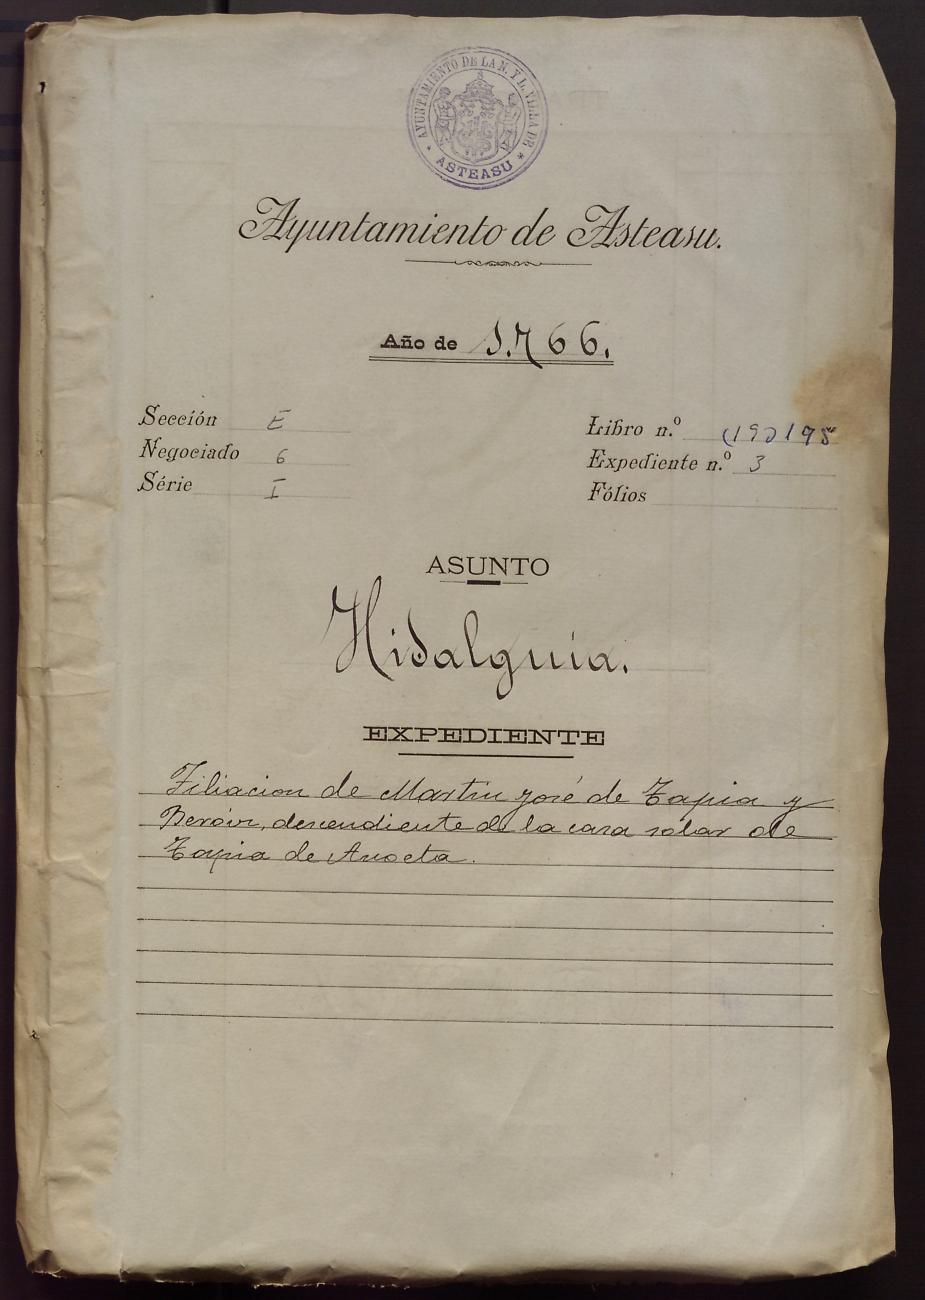 AYUNTAMIENTO DE LA N. Y L. VILLA DE
* ASTEASU *
Ayuntamiento de Asteasu.
Año de 1.766.
Sección E
Negociado 6
Série I
Libro n.º (19) 195
Expediente n.º 3
Fólios
ASUNTO
Hidalguía.
EXPEDIENTE
Filiacion de Martin José de Tapia y
descendiente de la casa solar de
Tapia de Anoeta.